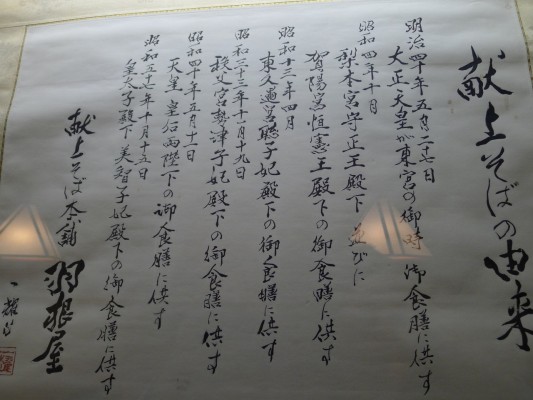 献上そばの由来
明治四十年五月二十七日
大正天皇が東宮の御時 御食膳に供す
昭和四年十月
梨本宮守正王殿下 並びに
賀陽宮恒憲王殿下の御食膳に供す
昭和十三年四月
東久邇宮聡子妃殿下の御食膳に供す
昭和三十三年十月十九日
秩父宮勢津子妃殿下の御食膳に供す
昭和四十年五月十一日
天皇 皇后両陛下の御食膳に供す
昭和五十七年十月十五日
皇太子殿下 美智子妃殿下の御食膳に供す
献上そば本舗 羽根屋